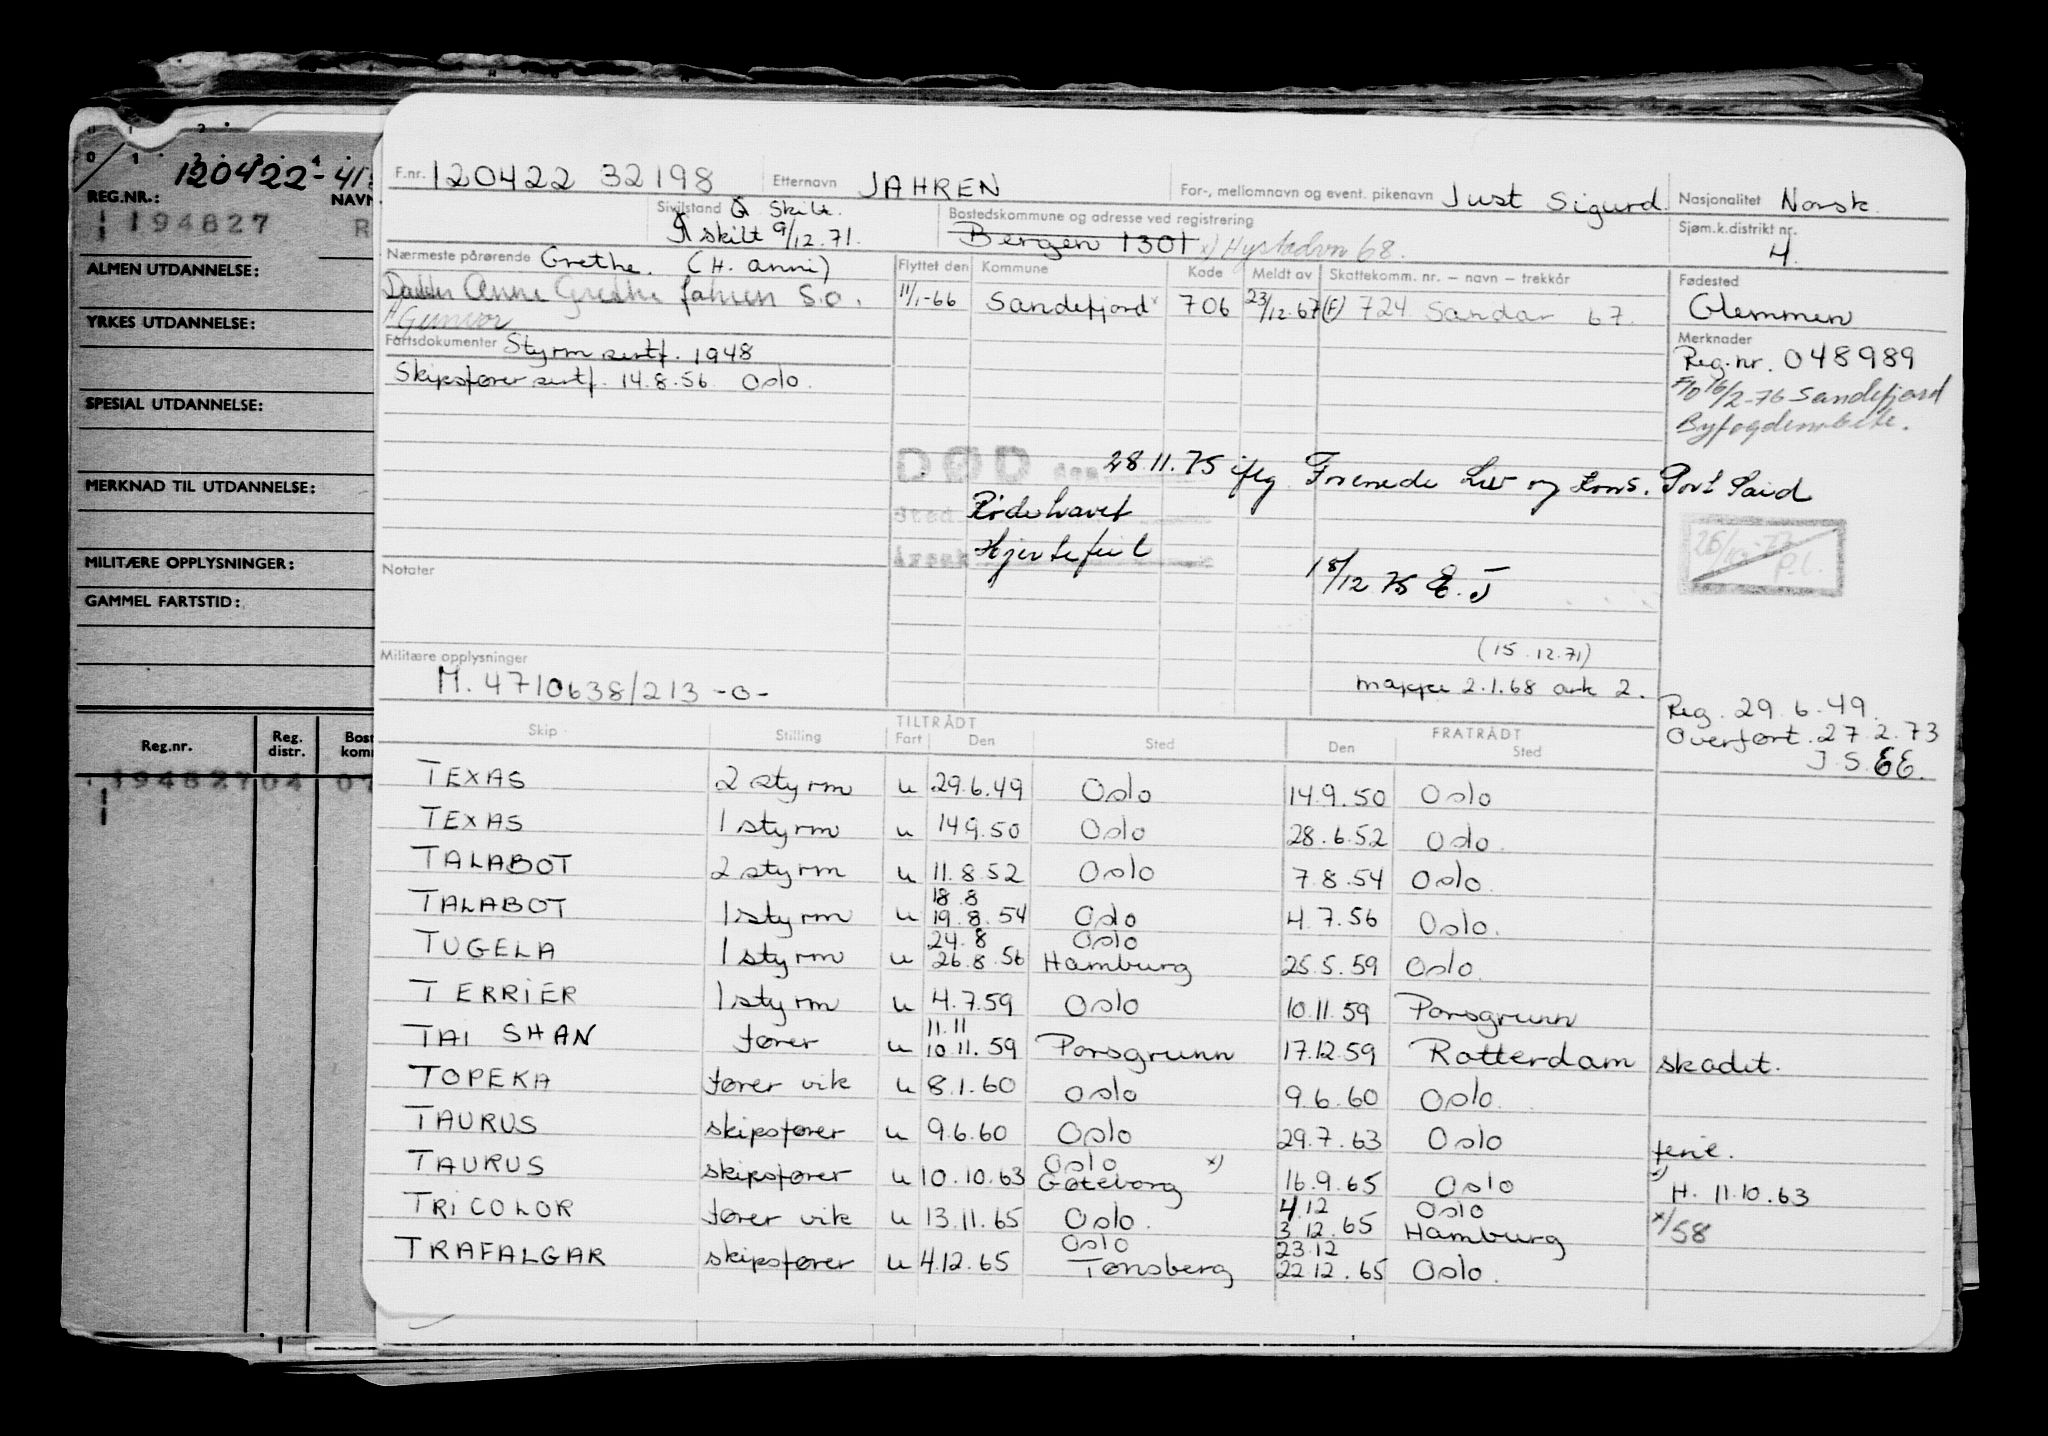 0 1 2
0 1 2 3 4
120422-41
REG.NR.: NAVN
194827 R
ALMEN UTDANNELSE:
YRKES UTDANNELSE:
SPESIAL UTDANNELSE:
MERKNAD TIL UTDANNELSE:
MILITÆRE OPPLYSNINGER:
GAMMEL FARTSTID:
Reg.nr. Reg. distr. Bost komm
194827 04 07
F.nr. 120422 32198 Etternavn JAHREN For-, mellomnavn og event. pikenavn Just Sigurd Nasjonalitet Norsk
Sivilstand G Skilt.
skilt 9/12.71.
Bostedskommune og adresse ved registrering
Bergen 1301 x) Hystadvn 68.
Sjøm.k.distrikt nr. 4.
Nærmeste pårørende Grethe. (H. Anni)
Datter Anne Grethe Jahren S.a.
H Gunvor
Flyttet den Kommune Kode Meldt av Skattekomm. nr. – navn – trekkår
11/1-66 Sandefjord x 706 23/12.67 (F) 724 Sandar 67.
Fødested
Glemmen
Fartsdokumenter Styrm sertf. 1948
Skipsfører sertf. 14.8.56 Oslo.
Merknader
Reg.nr. 048989
F/D 16/2-76 Sandefjord
Byfogdembete.
DØD den 28.11.75 iflg Forenede Liv og Kons. Port Said
Sted Rødehavet
Årsak Hjertefeil
18/12.75 E.J
26/10-77 P.L.
Notater
(15.12.71)
mappe 2.1.68 ark 2.
Militære opplysninger
M. 4710638/213 -0-
Reg. 29.6.49.
Overført. 27.2.73
J.S. EE.
Skip Stilling TILTRÅDT Fart Den Sted FRATRÅDT Den Sted
TEXAS 2 styrm u 29.6.49 Oslo 14.9.50 Oslo
TEXAS 1 styrm u 14.9.50 Oslo 28.6.52 Oslo.
TALABOT 2 styrm u 11.8.52 Oslo 7.8.54 Oslo.
18.8
TALABOT 1 styrm u 19.8.54 Oslo 4.7.56 Oslo.
24.8 Oslo
TUGELA 1 styrm u 26.8.56 Hamburg 25.5.59 Oslo.
TERRIER 1 styrm u 4.7.59 Oslo 10.11.59 Porsgrunn
11.11
TAI SHAN fører u 10.11.59 Porsgrunn 17.12.59 Rotterdam skadet.
TOPEKA fører vik u 8.1.60 Oslo 9.6.60 Oslo.
TAURUS skipsfører u 9.6.60 Oslo 29.7.63 Oslo ferie.
Oslo x)
TAURUS skipsfører u 10.10.63 Gøteborg 16.9.65 Oslo x) H. 11.10.63
4.12 Oslo
TRICOLOR fører vik u 13.11.65 Oslo. 3.12.65 Hamburg x/58
Oslo 23.12
TRAFALGAR skipsfører u 4.12.65 Tønsberg 22.12.65 Oslo.